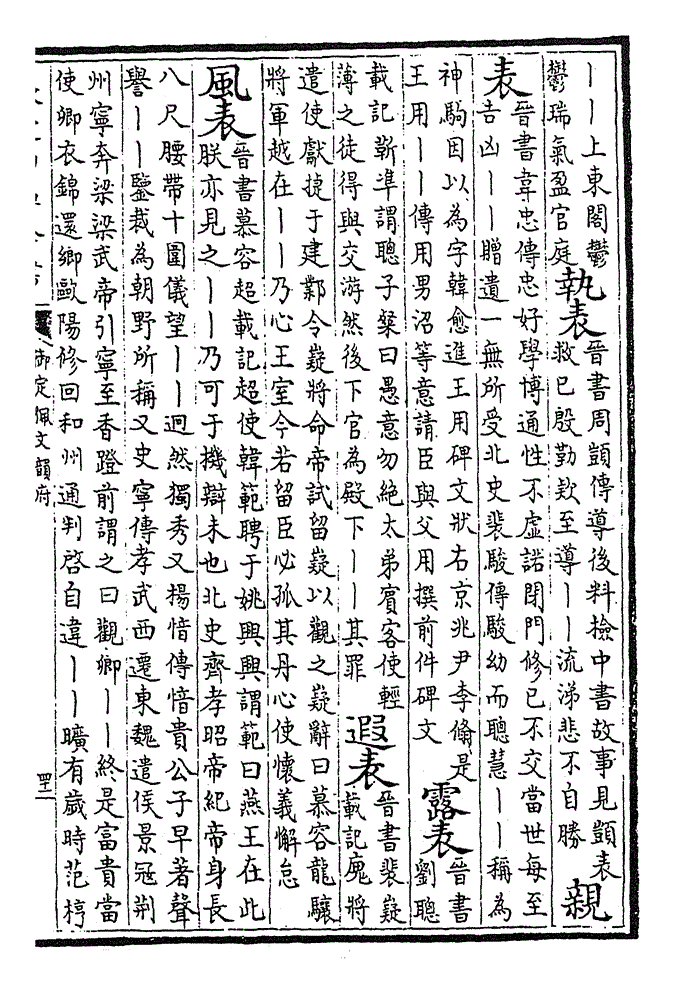 ｜｜上東閣鬱
鬱瑞氣盈官庭
執表
晉書周顗傳導後料檢中書故事見顗表
救已殷勤欵至導｜｜流涕悲不自勝
親
表
晉書韋忠傳忠好學博通性不虛諾閉門修已不交當世每至
吉凶｜｜贈遺一無所受北史裴駿傳駿幼而聰慧｜｜稱為
神駒因以為字韓愈進王用碑文狀右京兆尹李翛是
王用｜｜傳用男沼等意請臣與父用撰前件碑文
露表
晉書
劉聰
載記靳準謂聰子粲曰愚意勿絕太弟賓客使輕
薄之徒得與交游然後下官為殿下｜｜其罪
遐表
晉書裴嶷
載記廆將
遣使獻捷于建鄴令嶷將命帝試留嶷以觀之嶷辭曰慕容龍驤
將軍越在｜｜乃心王室今若留臣必孤其丹心使懷義懈怠
風表
晉書慕容超載記超使韓範聘于姚興興謂範曰燕王在此
朕亦見之｜｜乃可于機辯未也北史齊孝昭帝紀帝身長
八尺腰帶十圍儀望｜｜迥然獨秀又楊愔傳愔貴公子早著聲
譽｜｜鑒裁為朝野所稱又史寧傳孝武西遷東魏遣侯景寇荊
州寧奔梁梁武帝引寧至香蹬前謂之曰觀卿｜｜終是富貴當
使卿衣錦還鄉歐陽修回和州通判啓自違｜｜曠有歲時范梈
御定佩文韻府
四十二